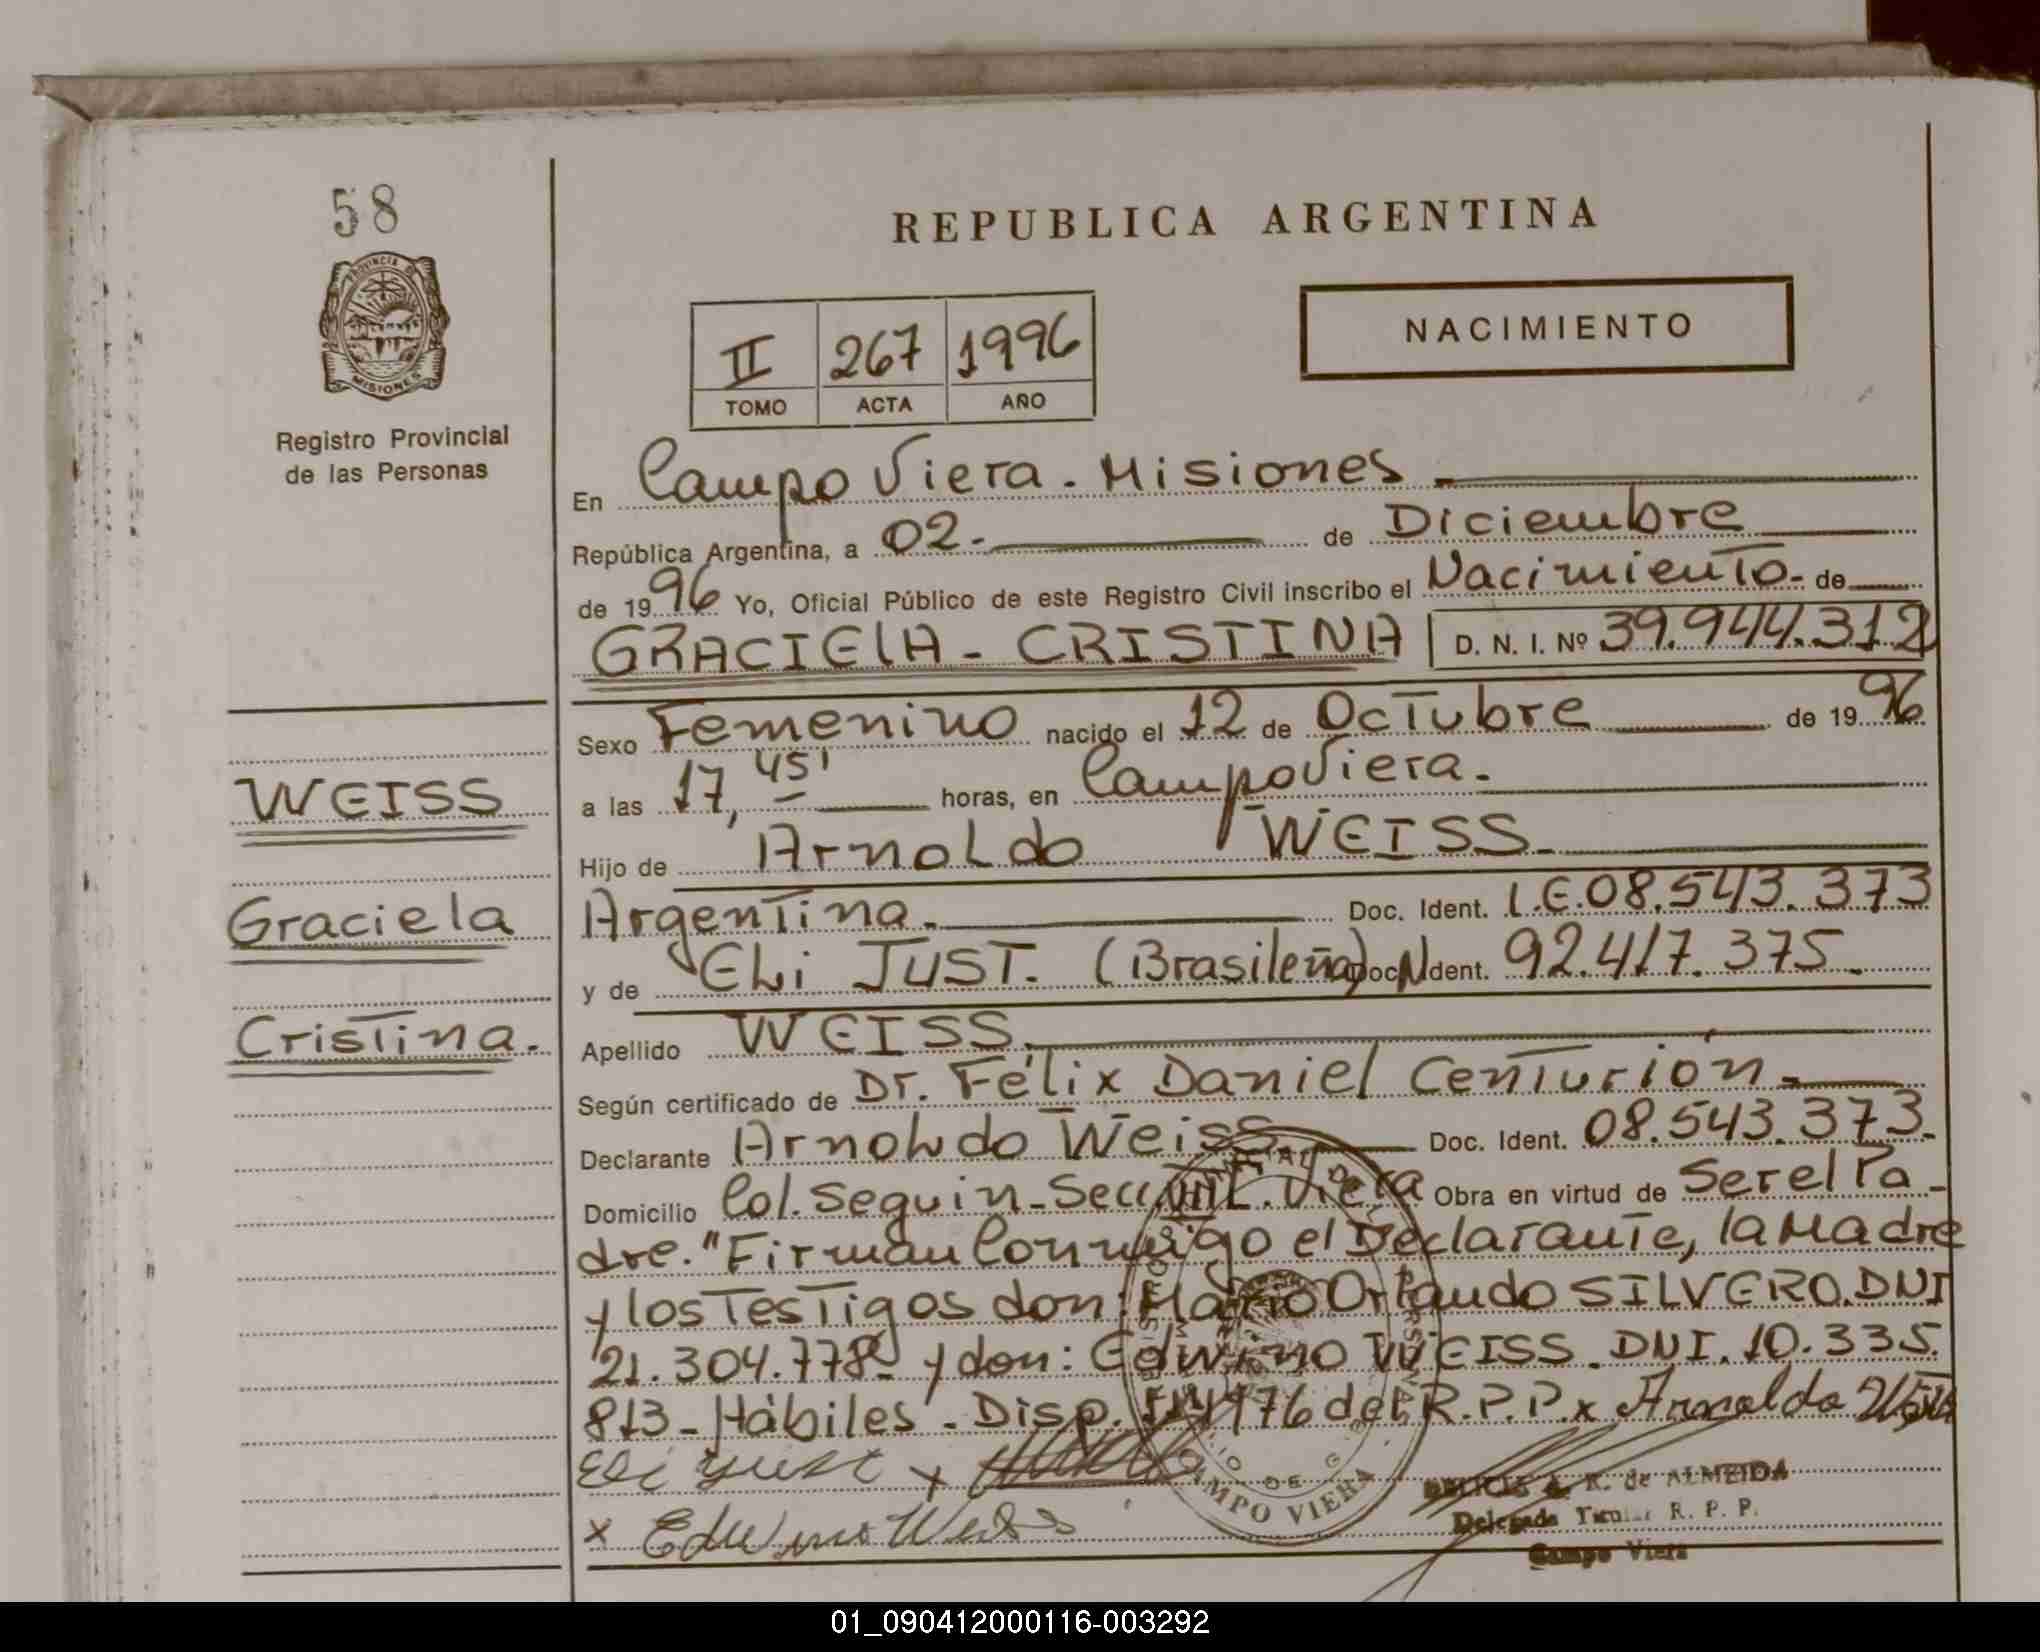 58
PROVINCIA DE
MISIONES
Registro Provincial
de las Personas
WEISS
Graciela
Cristina.
REPUBLICA ARGENTINA
II 267 1996
TOMO ACTA AÑO
NACIMIENTO
En Campo Viera. Misiones
República Argentina, a 02. de Diciembre
de 1996 Yo, Oficial Público de este Registro Civil inscribo el Nacimiento. de
GRACIELA - CRISTINA D. N. I. Nº 39.944.312
Sexo Femenino nacido el 12 de Octubre de 1996
a las 17,45' horas, en Campo Viera.
Hijo de Arnoldo WEISS.
Argentina. Doc. Ident. L.E.08.543.373
y de Eli JUST. (Brasileña) Doc. Ident. 92.417.375.
Apellido WEISS.
Según certificado de Dr. Félix Daniel Centurión.
Declarante Arnoldo Weiss Doc. Ident. 08.543.373.
Domicilio Col. Seguin. Secc. VIII. Viera Obra en virtud de Ser el Pa-
dre. "Firman Conmigo el Declarante, la Madre
y los Testigos don: Mario Orlando SILVERO. DNI
21.304.778 y don: Edwino WEISS. DNI. 10.335.
813 - Hábiles". Disp. 1976 del R.P.P. x Arnoldo Weiss
Eli Just x
x Edwino Weiss
CAMPO VIERA
A. R. de ALMEIDA
Delegada Titular R. P. P.
Campo Viera
01_090412000116-003292